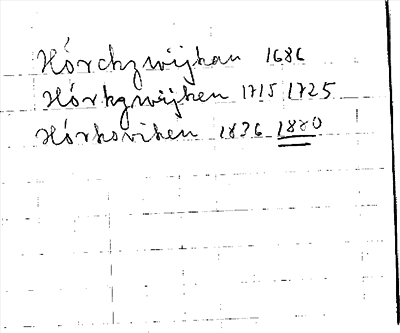 Hórchzwijkan 1686
Hórkgwijken 1715 1725
Hórksviken 1836 1880